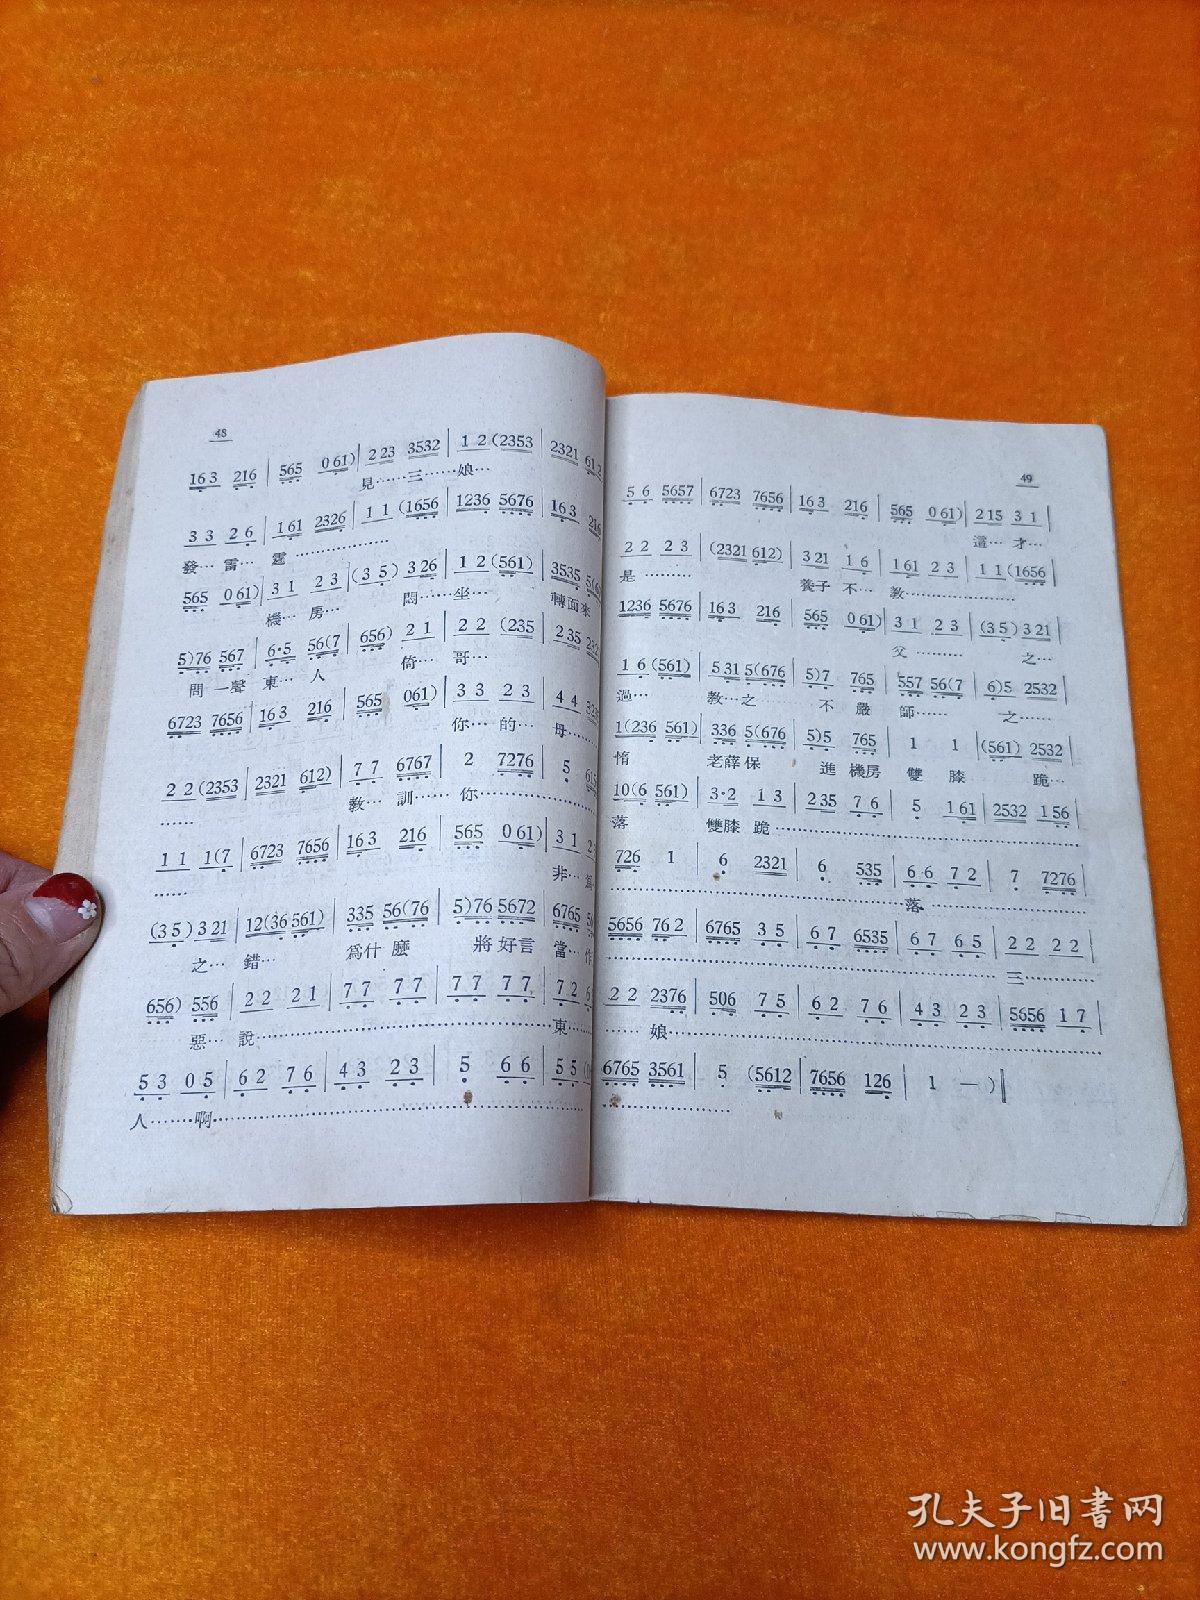 48
163 216 | 565 061) | 223 3532 | 12 (2353 | 2321 612
見……三……娘…
33 26 | 161 2326 | 11 (1656 | 1236 5676 | 163 216
發…雷…霆………………
565 061) | 31 23 | (35) 326 | 12 (561) | 3535 516
機…房… 悶……坐… 轉面來
5)76 567 | 6·5 56(7 | 656) 21 | 22 (235 | 235 232
問一聲東…人 倚…哥…
6723 7656 | 163 216 | 565 061) | 33 23 | 44
你…的…母……
22 (2353 | 2321 612) | 77 6767 | 2 7276 | 5
…… 教…訓……你………………
11 1(7 | 6723 7656 | 163 216 | 565 061) | 31
…… 非…
(35) 321 | 12(36 561) | 335 56(76 | 5)76 5672 | 6765
之…錯… 爲什麼 將好言當…作
656) 556 | 22 21 | 77 77 | 77 77 | 72
惡…說……………………………………東……
53 05 | 62 76 | 43 23 | 5 66 | 55
人……啊…………………………………………
49
56 5657 | 6723 7656 | 163 216 | 565 061) | 215 31 |
這…才…
22 23 | (2321 612) | 321 16 | 161 23 | 11 (1656 |
是……… 養子不…教………………
1236 5676 | 163 216 | 565 061) | 31 23 | (35) 321 |
父………之…
16 (561) | 531 5(676 | 5)7 765 | 557 56(7 | 6)5 2532 |
過… 教…之 不嚴師……之……
1(236 561) | 336 5(676 | 5)5 765 | 1 1 | (561) 2532 |
惰 老薛保 進機房雙膝 跪…
10(6 561) | 3·2 13 | 235 76 | 5 161 | 2532 156 |
落 雙膝跪………………………………………
726 1 | 6 2321 | 6 535 | 66 72 | 7 7276 |
………………………………落…………………
5656 762 | 6765 35 | 67 6535 | 67 65 | 22 22 |
…………………………………………三………
22 2376 | 506 75 | 62 76 | 43 23 | 5656 17 |
……娘……………………………………………
6765 3561 | 5 (5612 | 7656 126 | 1 — )‖
………………
孔夫子旧書网
www.kongfz.com